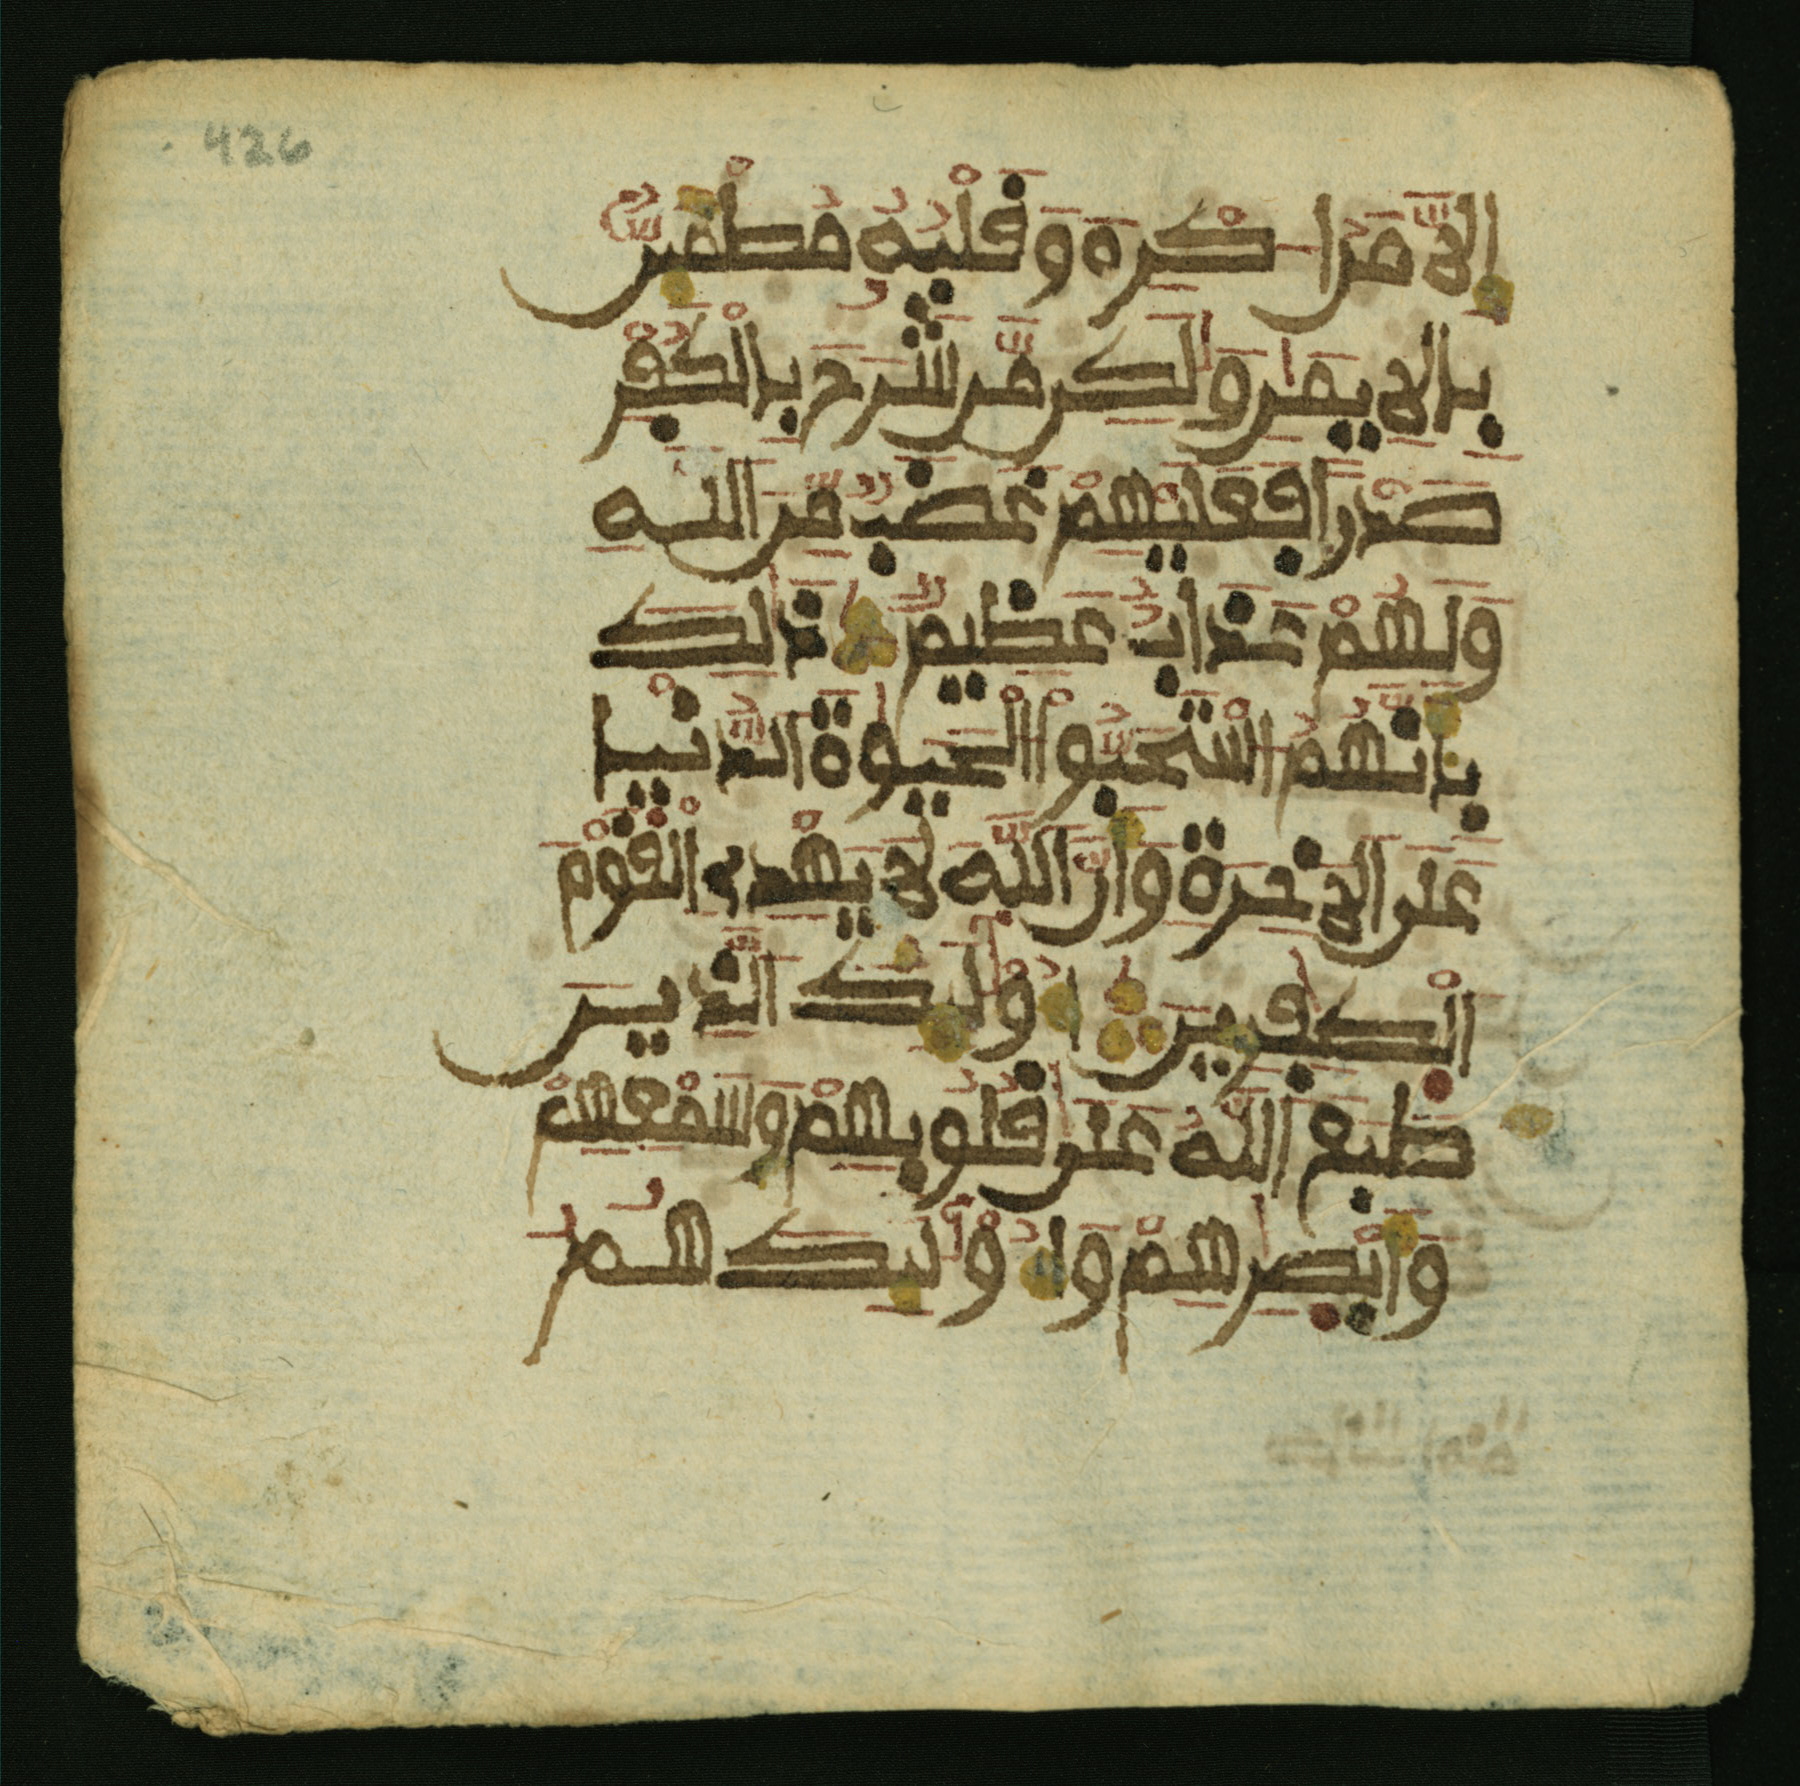 426
إِلَّا مَنُ اكْرِهَ وَقَلْبُهُ مُطْمَئِنٌّ
بِالِايمَٰنِ وَلَٰكِن مَّن شَرَحَ بِالْكُفْرِ
صَدْرًا فَعَلَيْهِمْ غَضَبٌ مِّنَ اللَّهِ
وَلَهُمْ عَذَابٌ عَظِيمٌ ذَٰلِكَ
بِأَنَّهُمُ اسْتَحَبُّوا الْحَيَوٰةَ الدُّنْيَا
عَلَى الَاخِرَةِ وَأَنَّ اللَّهَ لَا يَهْدِي الْقَوْمَ
الْكَٰفِرِينَ أُوْلَٰئِكَ الَّذِينَ
طَبَعَ اللَّهُ عَلَىٰ قُلُوبِهِمْ وَسَمْعِهِمْ
وَأَبْصَٰرِهِمْ وَأُوْلَٰئِكَ هُمُ